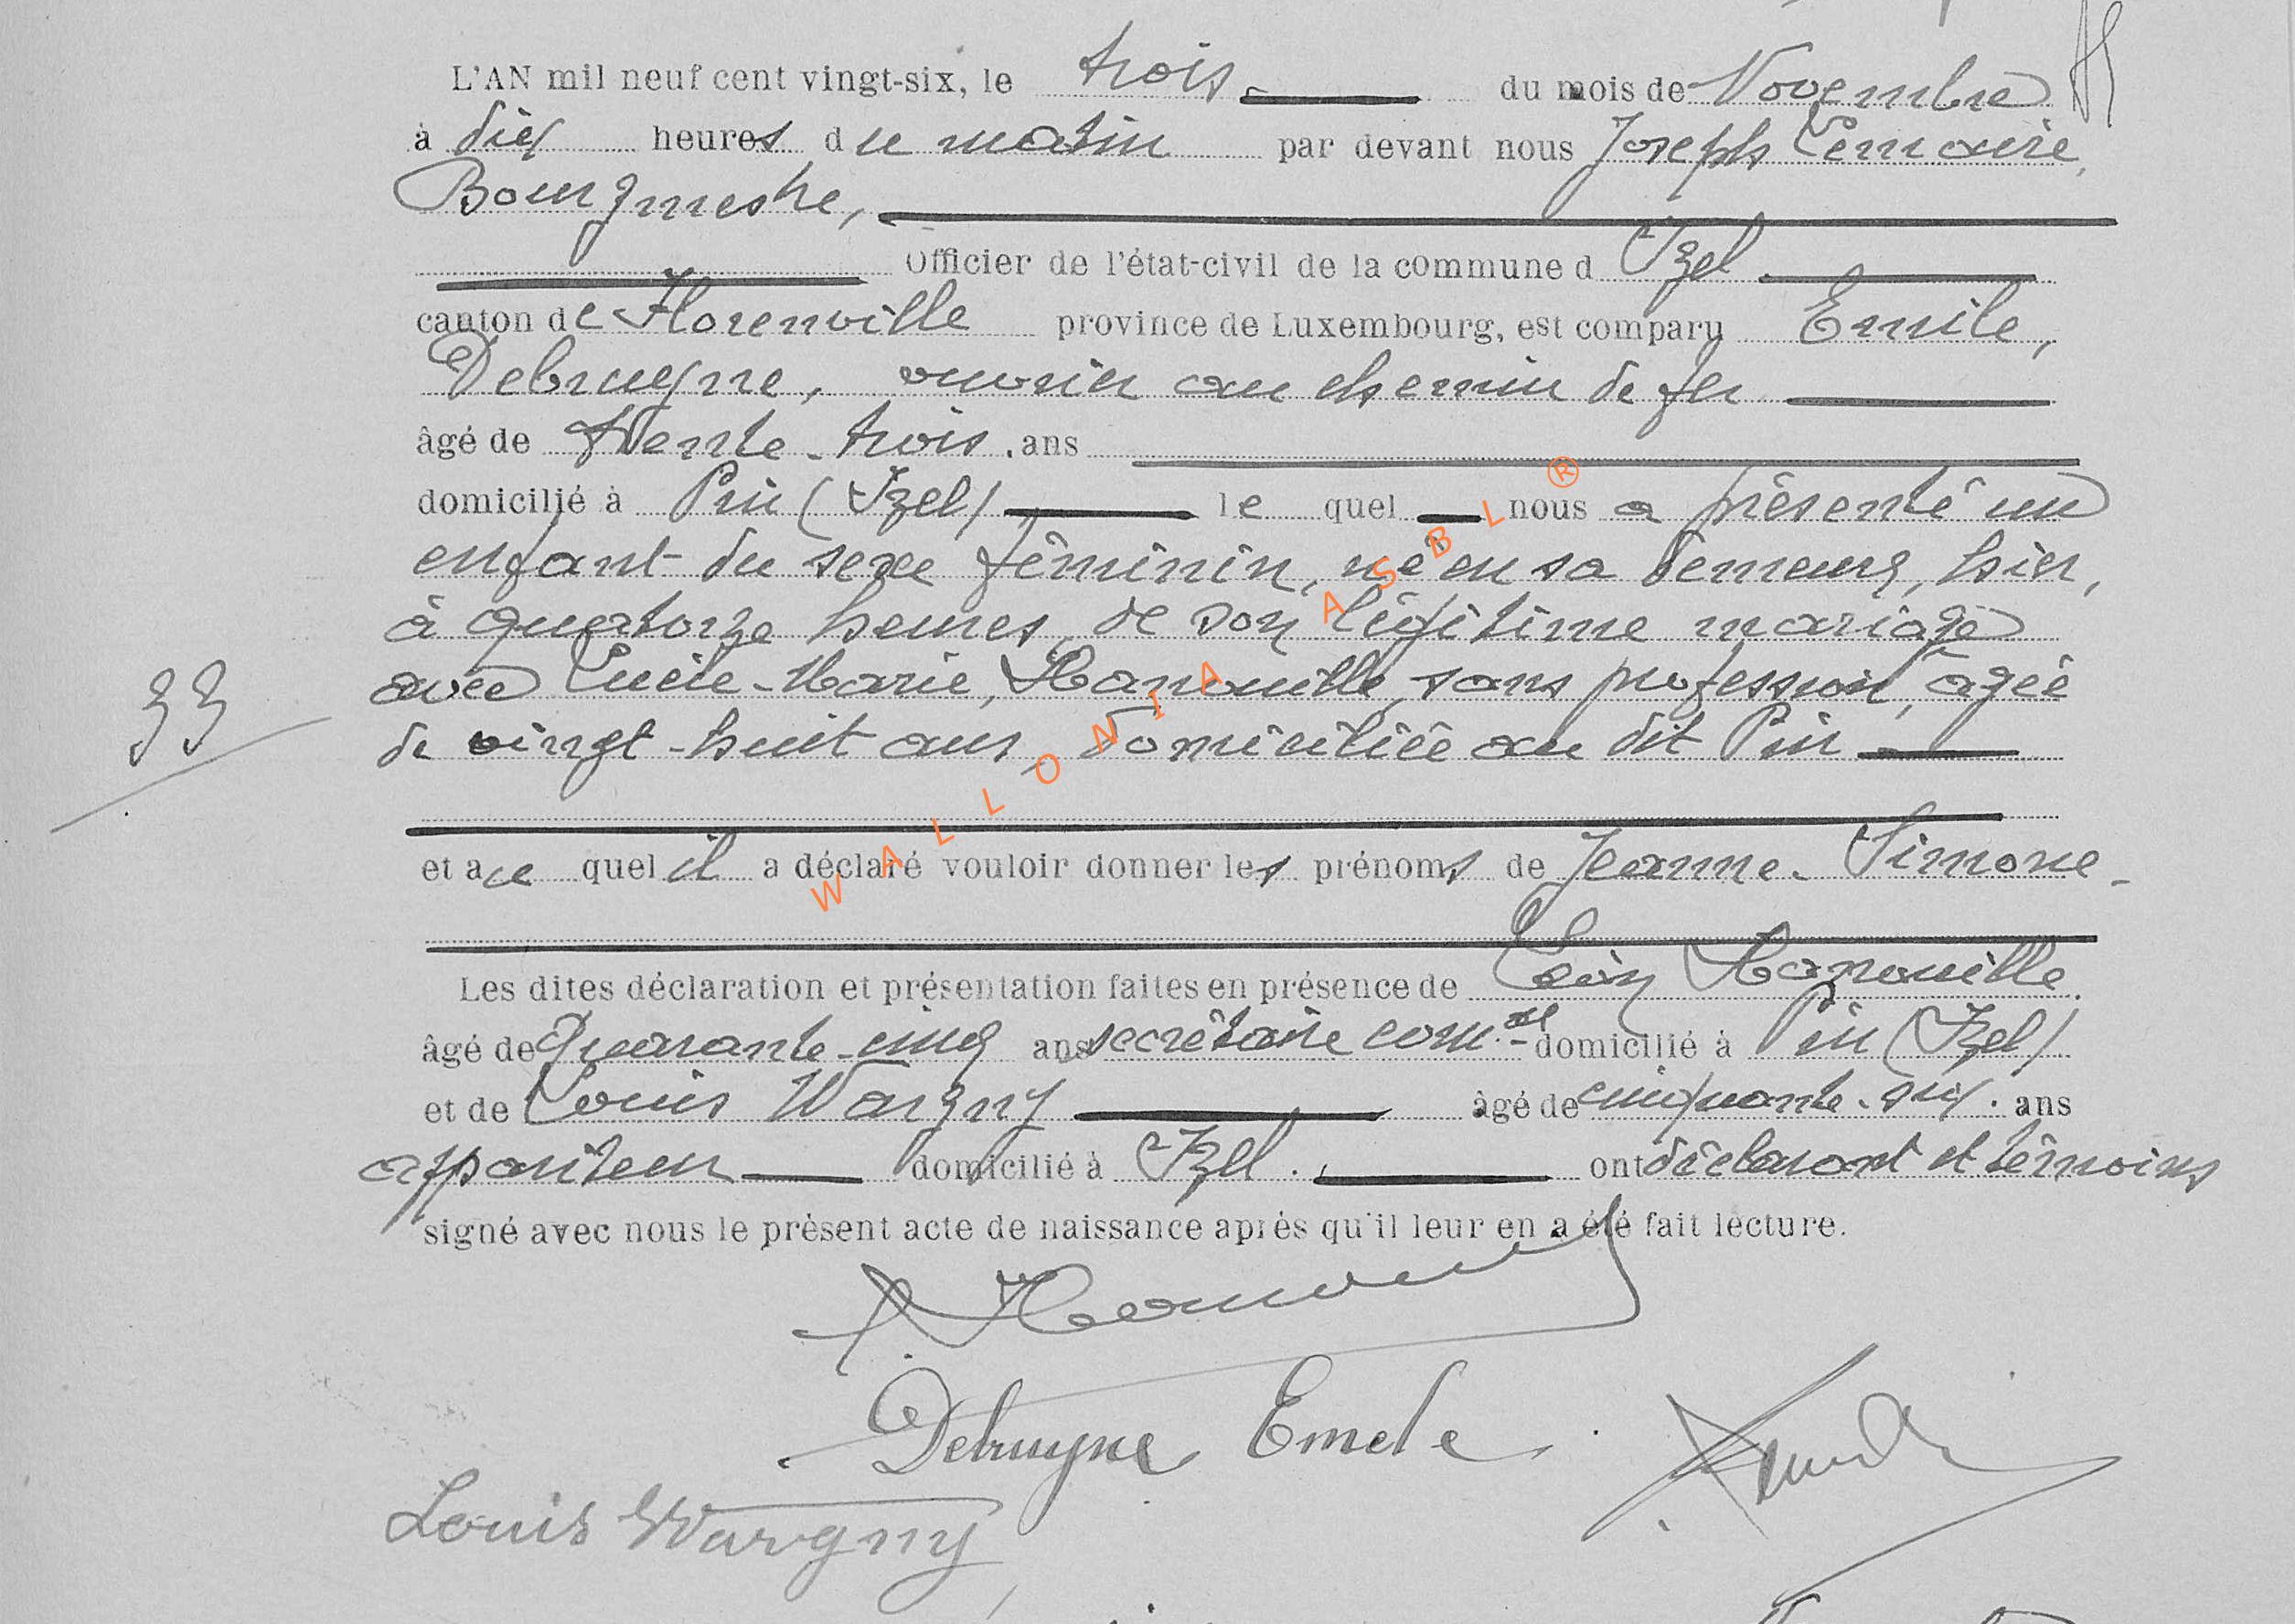 L'AN mil neuf cent vingt-six, le trois du mois de Novembre
à dix heures du matin par devant nous Joseph Lemaire,
Bourgmestre,
Officier de l'état-civil de la commune d Izel
canton de Florenville province de Luxembourg, est comparu Emile,
Debruyne, ouvrier au chemin de fer
âgé de trente-trois ans
domicilié à Pin (Izel) le quel nous a présenté un
enfant du sexe féminin, né en sa demeure, hier,
à quatorze heures, de son légitime mariage
avec Lucie-Marie, Hanouille, sans profession, âgée
33
de vingt-huit ans, domiciliée au dit Pin
et au quel il a déclaré vouloir donner les prénoms de Jeanne-Simone-
Les dites déclaration et présentation faites en présence de Léon Hanouille
âgé de Quarante-cinq ans secrétaire com.al domicilié à Pin (Izel)
et de Louis Wargny âgé de cinquante-six ans
appariteur domicilié à Izel. ont déclarant et témoins
signé avec nous le présent acte de naissance après qu'il leur en a été fait lecture.
Debruyne Emile
Louis Wargny
WALLONIA ASBL ®